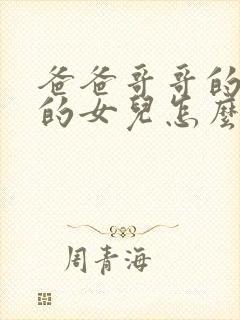 爸爸哥哥的
的女兒怎麼
周青海